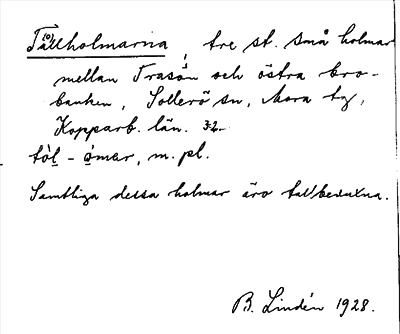 Tållholmarna, tre st. små holmar
mellan Trasön och östra bro-
banken, Sollerö sn, Mora tg,
Kopparb. län. 32.
tòl̠-o̠mar, m. pl.
Samtliga dessa holmar äro tallbevuxna.
B. Lindén 1928.